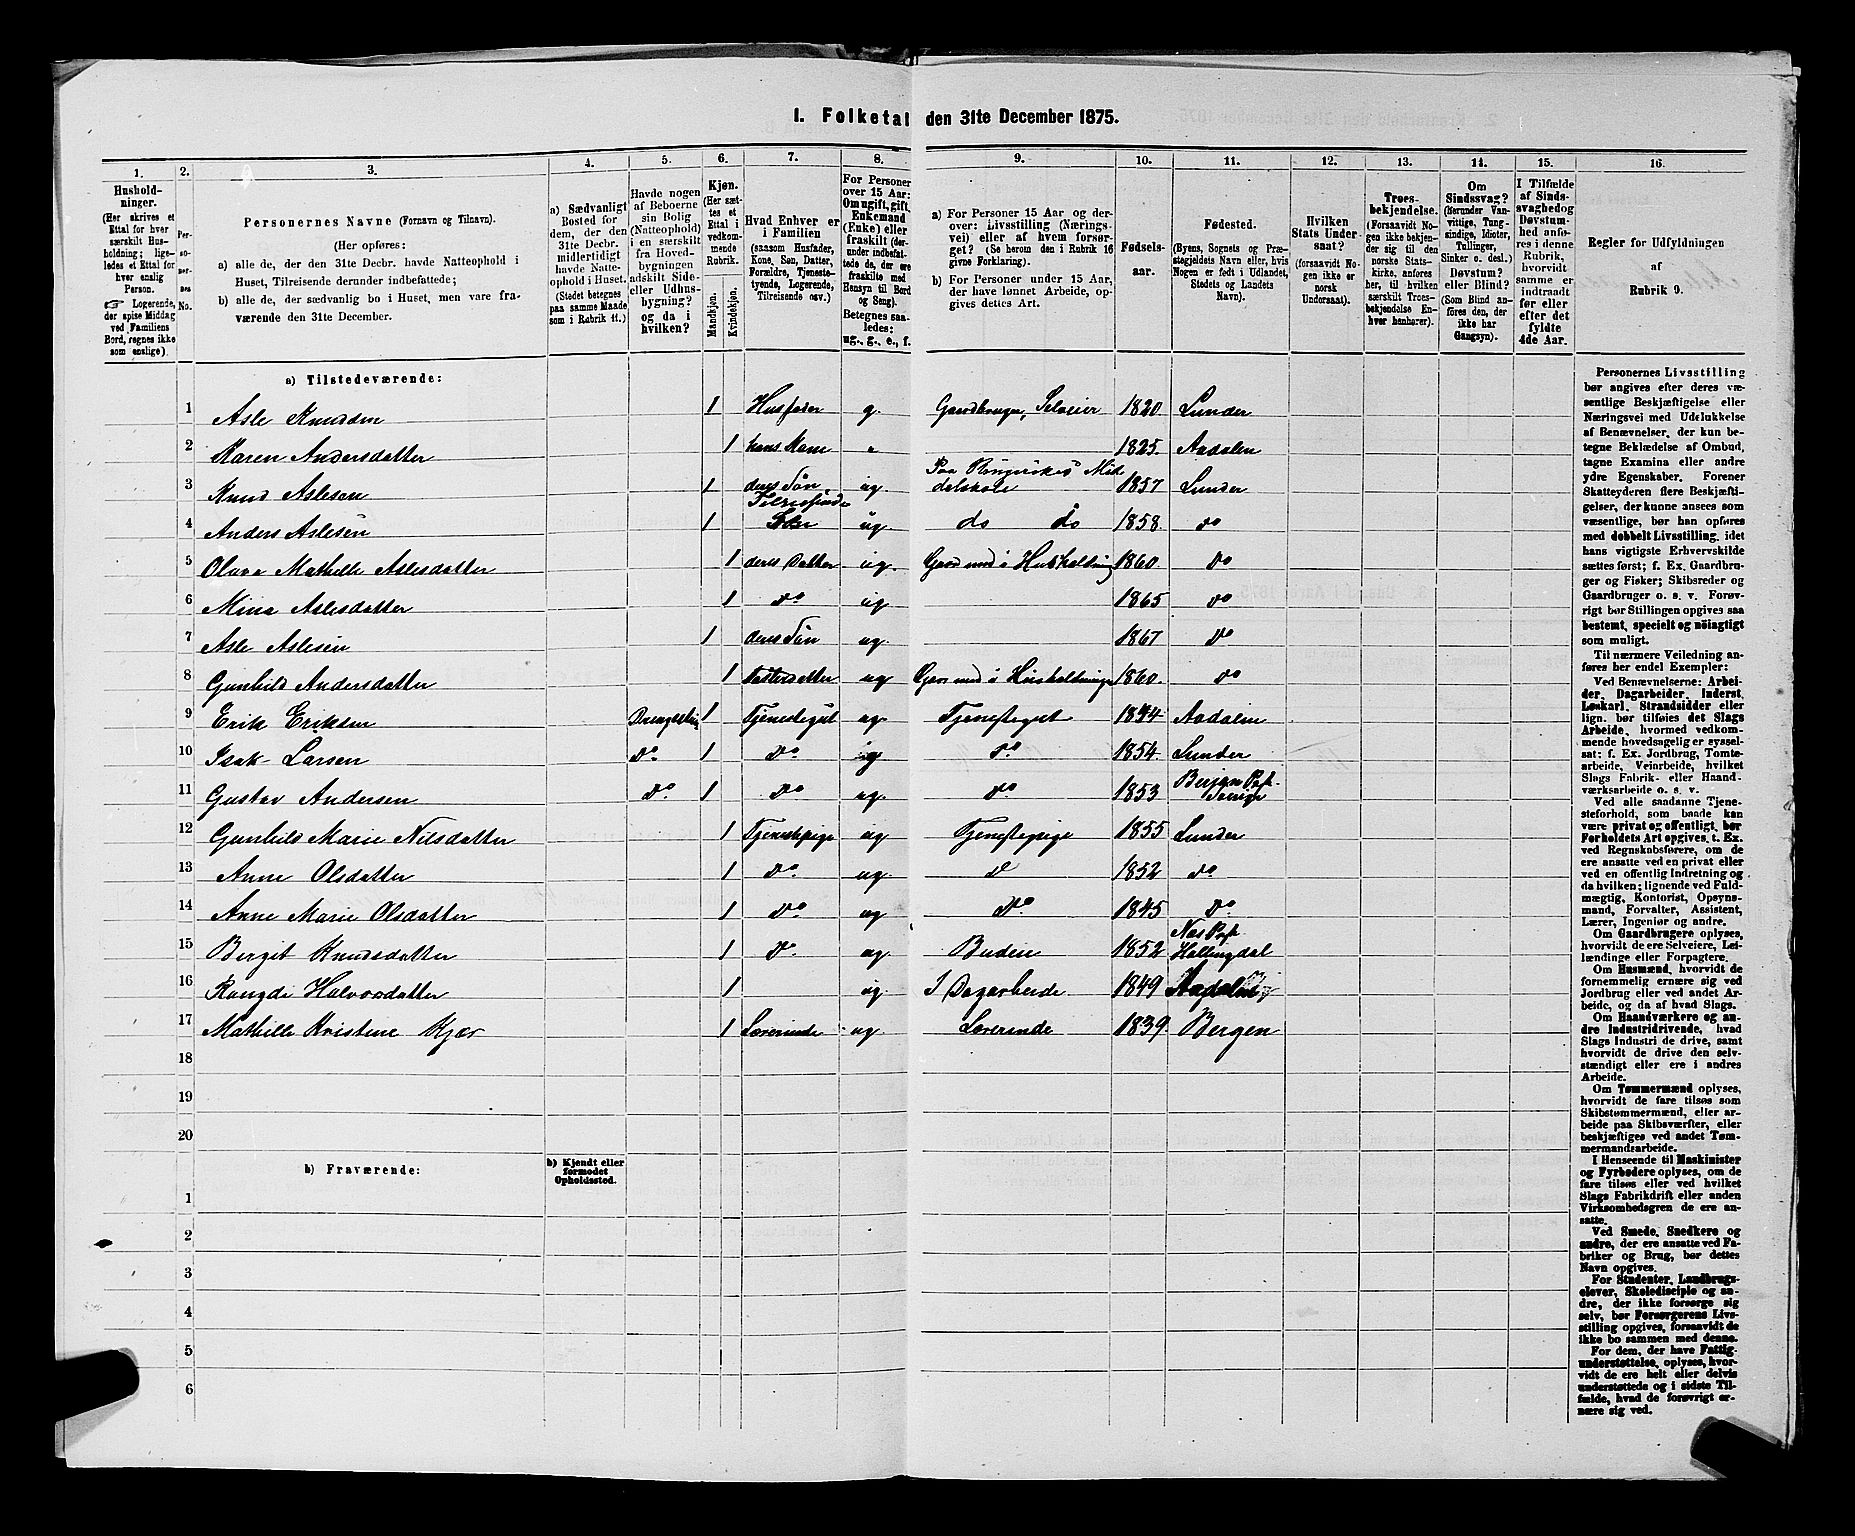 1. Folketal den 31te December 1875.
1. 2. 3. 4. 5. 6. 7. 8. 9. 10. 11. 12. 13. 14. 15. 16.
Hushold-
ninger.
(Her skrives et
Ettal for hver
særskilt Hus-
holdning; lige-
ledes et Ettal for
hver enslig
Person.
☞ Logerende,
der spise Middag
ved Familiens
Bord, regnes ikke
som enslige).
Per-
so-
ner-
nes
No.
Personernes Navne (Fornavn og Tilnavn).
(Her opføres:
a) alle de, der den 31te Decbr. havde Natteophold i
Huset, Tilreisende derunder indbefattede;
b) alle de, der sædvanlig bo i Huset, men vare fra-
værende den 31te December.
a) Sædvanligt
Bosted for
dem, der den
31te Decbr.
midlertidigt
havde Natte-
ophold i Huset.
(Stedet betegnes
paa samme Maade
som i Rubrik 11.)
Havde nogen
af Beboerne
sin Bolig
(Natteophold)
i en særskilt
fra Hoved-
bygningen
adskilt Side-
eller Udhus-
bygning?
og da i
hvilken?
Kjøn.
(Her sæt-
tes et
Ettal i
vedkom-
mende
Rubrik.
Mandkjøn.
Kvindekjøn.
Hvad Enhver er
i Familien
(saasom Husfader,
Kone, Søn, Datter,
Forældre, Tjeneste-
tyende, Logerende,
Tilreisende osv.)
For Personer
over 15 Aar:
Om ugift, gift,
Enkemand
(Enke) eller
fraskilt (der-
under indbefat-
tede de, der ere
fraskilte med
Hensyn til Bord
og Seng).
Betegnes saa-
ledes:
ug., g., e., f.
a) For Personer 15 Aar og der-
over: Livsstilling (Nærings-
vei) eller af hvem forsør-
get? (Se herom den i Rubrik 16
givne Forklaring).
b) For Personer under 15 Aar,
der have lønnet Arbeide, op-
gives dettes Art.
Fødsels-
aar.
Fødested.
(Byens, Sognets og Præ-
stegjeldets Navn eller, hvis
Nogen er født i Udlandet,
Stedets og Landets
Navn).
Hvilken
Stats Under-
saat?
(forsaavidt No-
gen ikke er
norsk
Undersaat).
Troes-
bekjendelse.
(Forsaavidt No-
gen ikke bekjen-
der sig til den
norske Stats-
kirke, anføres
her, til hvilken
særskilt Troes-
bekjendelse En-
hver henhører).
Om
Sindssvag?
(Herunder Van-
vittige, Tung-
sindige, Idioter,
Tullinger,
Sinker o. desl.)
Døvstum?
eller Blind?
(Som Blind an-
føres den, der
ikke har
Gangsyn).
I Tilfælde
af Sinds-
svaghed og
Døvstum-
hed anfø-
res i denne
Rubrik,
hvorvidt
samme er
indtraadt
før eller
efter det
fyldte
4de Aar.
Regler for Udfyldningen
af
Rubrik 9.
a) Tilstedeværende:
1 Asle Knudsen 1 Husfader g. Gaardbruger, Selveier 1820 Lunder
2 Karen Andersdatter 1 hans Kone " 1825. Aadalen
3 Knud Aslesen 1 deres Søn ug. Paa Ringerikes Mid
delskole 1857 Lunder
4 Anders Aslesen 1 ug do do 1858. do
5 Olava Mathilde Aslesdatter 1 deres Datter ug. Gaar med i Husholdning 1860. Do
6 Mina Aslesdatter 1 Do ug 1865 do
7 Asle Aslesen 1 deres Søn ug. 1867 Do
8 Gunhild Andersdatter 1 ug Gaar med i Husholdningen 1860. do
9 Erik Eriksen 1 Tjenestegut ug Tjenestegut 1844 Aadalen
10 Isak Larsen Do 1 Do ug Do 1854. Lunder
11 Gustav Andersen Do. 1 Do ug. Do. 1853
12 Gunhild Marie Nilsdatter 1 Tjenestepige ug Tjenestepige 1855 Lunder
13 Anne Olsdatter 1 Do. ug. D 1852 do
14 Anne Marie Olsdatter 1 Do. ug Do. 1845 Do.
15 Bergit Knudsdatter 1 Do. ug Budeie 1852 Næs Pgf.
Hallingdal
16 Rangdi Halvorsdatter 1 ug I Dagarbeide 1849 Aadalen
17 Mathilde Kristine Kjær 1 Lærerinde ug Lærerinde 1839. Bergen
18
19
20
b) Fraværende:
b) Kjendt eller
formodet
Opholdssted.
1
2
3
4
5
6
Personernes Livsstilling
bør angives efter deres væ-
sentlige Beskjæftigelse eller
Næringsvei med Udelukkelse
af Benævnelser, der kun be-
tegne Beklædelse af Ombud,
tagne Examina eller andre
ydre Egenskaber. Forener
Skatteyderen flere Beskjæfti-
gelser, der kunne ansees som
væsentlige, bør han opføres
med dobbelt Livsstilling, idet
hans vigtigste Erhvervskilde
sættes først; f. Ex. Gaardbru-
ger og Fisker; Skibsreder og
Gaardbruger o. s. v. Forøv-
rigt bør Stillingen opgives saa
bestemt, specielt og nöiagtigt
som muligt.
Til nærmere Veiledning an-
føres her endel Exempler:
Ved Benævnelserne: Arbei-
der, Dagarbeider, Inderst,
Løskarl, Strandsidder eller
lign. bør tilføies det Slags
Arbeide, hvormed vedkom-
mende hovedsagelig er syssel-
sat: f. Ex. Jordbrug, Tomte-
arbeide, Veinarbeide, hvilket
Slags Fabrik- eller Haand-
værksarbeide o. s. v.
Ved alle saadanne Tjene-
steforhold, som baade kan
være privat og offentligt, bør
Forholdets Art opgives, t. Ex.
ved Regnskabsførere, om de
ere ansatte ved en privat eller
ved en offentlig Indretning og
da hvilken; lignende ved Fuld-
mægtig, Kontorist, Opsyns-
mand, Forvalter, Assistent,
Lærer, Ingeniør og andre.
Om Gaardbrugere oplyses,
hvorvidt de ere Selveiere, Lei-
lændinge eller Forpagtere.
Om Husmænd, hvorvidt de
fornemmelig ernære sig ved
Jordbrug eller ved andet Ar-
beide, og da af hvad Slags.
Om Haandværkere og an-
dre Industridrivende, hvad
Slags Industri de drive, samt
hvorvidt de drive den selv-
stændigt eller ere i andres
Arbeide.
Om Tømmermænd oplyses,
hvorvidt de fare tilsøs som
Skibstømmermænd, eller ar-
beide paa Skibsværfter, eller
beskjæftiges ved andet Tøm-
mermandsarbeide.
I Henseende til Maskinister
og Fyrbødere oplyses, om de
fare tilsøs eller ved hvilket
Slags Fabrikdrift eller anden
Virksomhedsgren de ere an-
satte.
Ved Smede, Snedkere og
andre, der ere ansatte ved Fa-
briker og Brug, bør dettes
Navn opgives.
For Studenter, Landbrugs-
elever, Skoledisciple og an-
dre, der ikke forsørge sig
selv, bør Forsørgerens Livs-
stilling opgives, forsaavidt de
ikke bo sammen med denne.
For dem, der have Fattig-
understøttelse, oplyses, hvor-
vidt de ere helt eller delvis
understøttede og i sidste Til-
fælde, hvad de forøvrigt er-
nære sig ved.